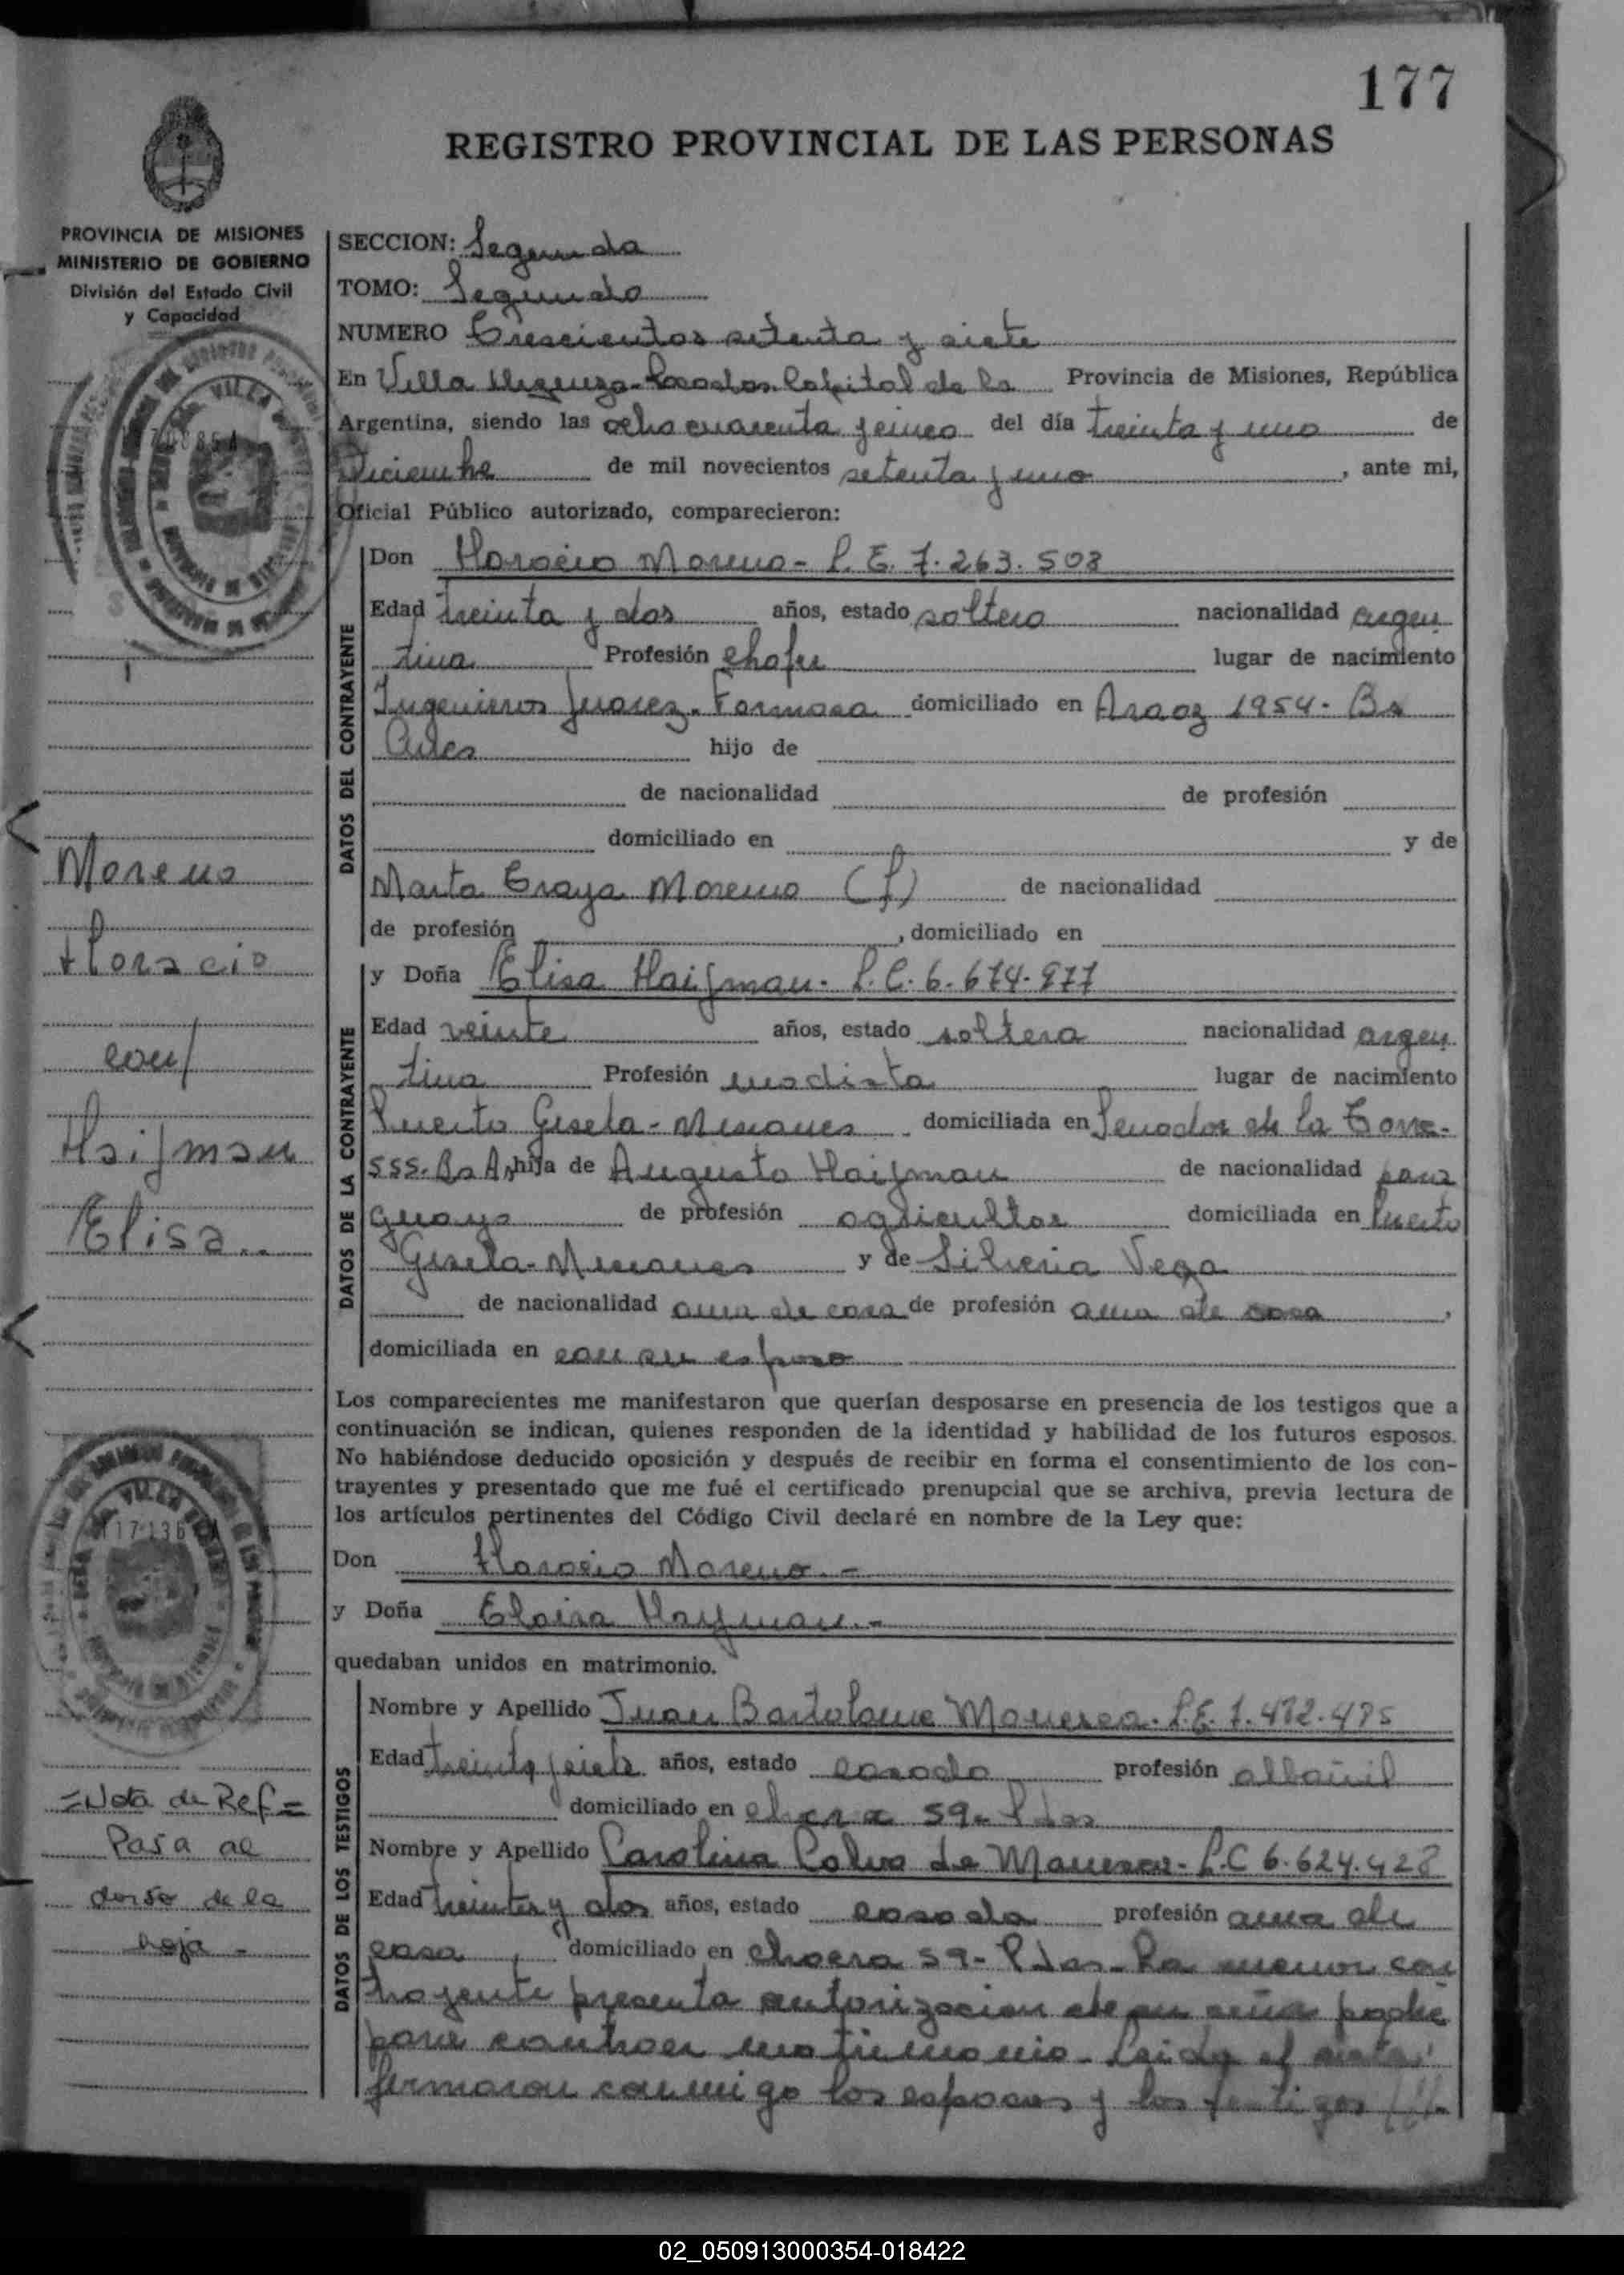 177
REGISTRO PROVINCIAL DE LAS PERSONAS
PROVINCIA DE MISIONES
MINISTERIO DE GOBIERNO
División del Estado Civil
y Capacidad
SECCION: Segunda
TOMO: Segundo
NUMERO Trescientos setenta y siete
En Villa Urquiza - Posadas Capital de la Provincia de Misiones, República
Argentina, siendo las ocho cuarenta y cinco del día treinta y uno de
Diciembre de mil novecientos setenta y uno, ante mi,
Oficial Público autorizado, comparecieron:
DATOS DEL CONTRAYENTE
Don Horacio Moreno - L. E. 7.263.503
Edad treinta y dos años, estado soltero nacionalidad argen
tina Profesión chofer lugar de nacimiento
Ingenieros Juarez - Formosa domiciliado en Araoz 1954 - Bs
Aires hijo de
de nacionalidad de profesión
domiciliado en y de
Marta Moreno (f) de nacionalidad
de profesión , domiciliado en
DATOS DE LA CONTRAYENTE
y Doña Elisa Haifman - L. C. 6.674.977
Edad veinte años, estado soltera nacionalidad argen
tina Profesión modista lugar de nacimiento
Puerto Gisela - Misiones domiciliada en Senador de la Torre -
555 - Bs As hija de Augusto Haifman de nacionalidad para
guaya de profesión agricultor domiciliada en Puerto
Gisela - Misiones y de Silveria Vega
de nacionalidad ama de casa de profesión ama de casa,
domiciliada en con su esposo
Los comparecientes me manifestaron que querían desposarse en presencia de los testigos que a
continuación se indican, quienes responden de la identidad y habilidad de los futuros esposos.
No habiéndose deducido oposición y después de recibir en forma el consentimiento de los con-
trayentes y presentado que me fué el certificado prenupcial que se archiva, previa lectura de
los artículos pertinentes del Código Civil declaré en nombre de la Ley que:
Don Horacio Moreno. -
y Doña Eloisa Hayfman. -
quedaban unidos en matrimonio.
DATOS DE LOS TESTIGOS
Nombre y Apellido Juan Bartolome L.E. 7.472.475
Edad treinta y siete años, estado casado profesión albañil
domiciliado en chacra 59 - Pdas
Nombre y Apellido Carolina Calvo de L.C 6.624.428
Edad treinta y dos años, estado casada profesión ama de
casa, domiciliado en chacra 59 - Pdas - La menor con
trayente presenta autorizacion de su padre
para contraer matrimonio - Leida el acta
firmaron conmigo los esposos y los testigos
Moreno
Horacio
con/
Haifman
Elisa..
= Nota de Ref =
Pasa al
dorso de la
hoja -
02_050913000354-018422